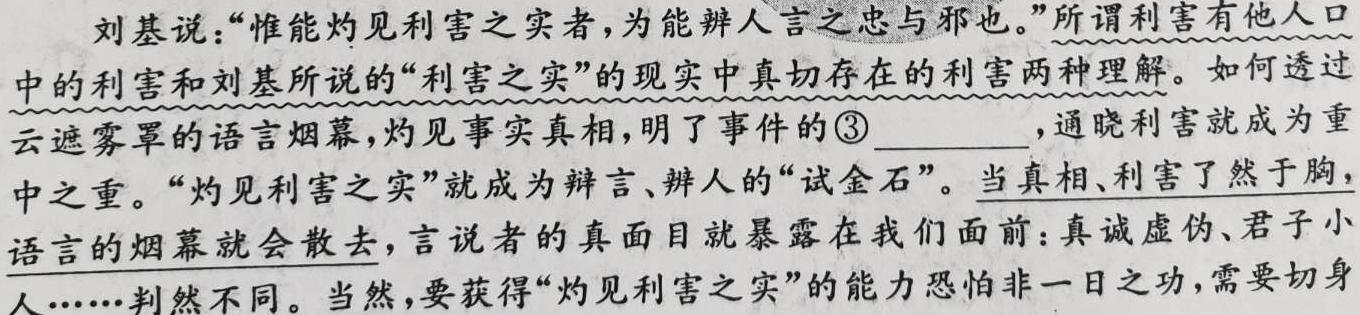 刘基说：“惟能灼见利害之实者，为能辨人言之忠与邪也。”所谓利害有他人口
中的利害和刘基所说的“利害之实”的现实中真切存在的利害两种理解。如何透过
云遮雾罩的语言烟幕，灼见事实真相，明了事件的③________，通晓利害就成为重
中之重。“灼见利害之实”就成为辩言、辨人的“试金石”。当真相、利害了然于胸，
语言的烟幕就会散去，言说者的真面目就暴露在我们面前：真诚虚伪、君子小
人……判然不同。当然，要获得“灼见利害之实”的能力恐怕非一日之功，需要切身